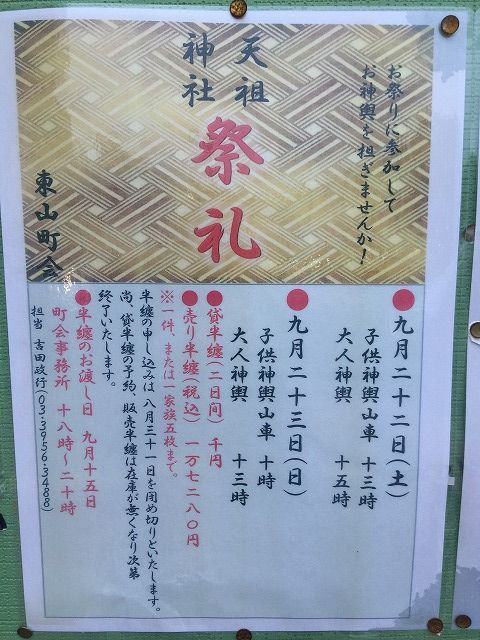 お祭りに参加して
お神輿を担ぎませんか！
天祖
神社
祭礼
東山町会
●九月二十二日（土）
子供神輿山車　十三時
大人神輿　十五時
●九月二十三日（日）
子供神輿山車　十時
大人神輿　十三時
●貸半纏（二日間）千円
●売り半纏（税込）一万七二八〇円
※一件、または一家族五枚まで。
半纏の申し込みは八月三十一日を閉め切りといたします。
尚、貸半纏の予約、販売半纏は在庫が無くなり次第
終了いたします。
●半纏のお渡し日　九月十五日
町会事務所　十八時～二十時
担当　吉田政行（03-3956-3488）